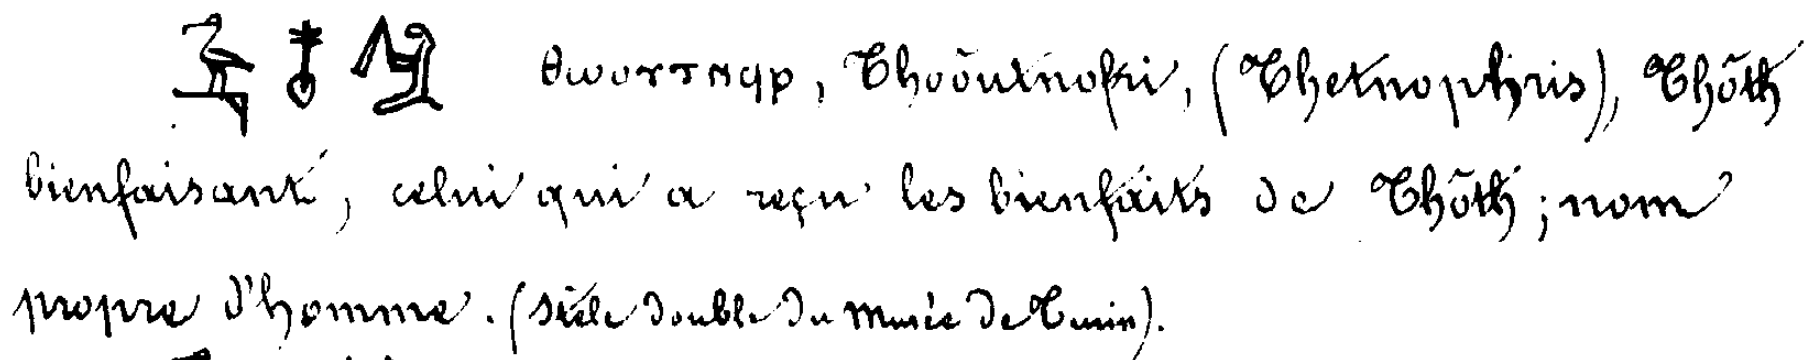 𓅝𓄤𓀀 ⲑⲱⲟⲩⲧⲛϥⲣ, Thoôutnofri, (Thetnophris), Thôth
bienfaisant, celui qui a reçu les bienfaits de Thôth; nom
propre d'homme. (Stèle double du Musée de Turin).